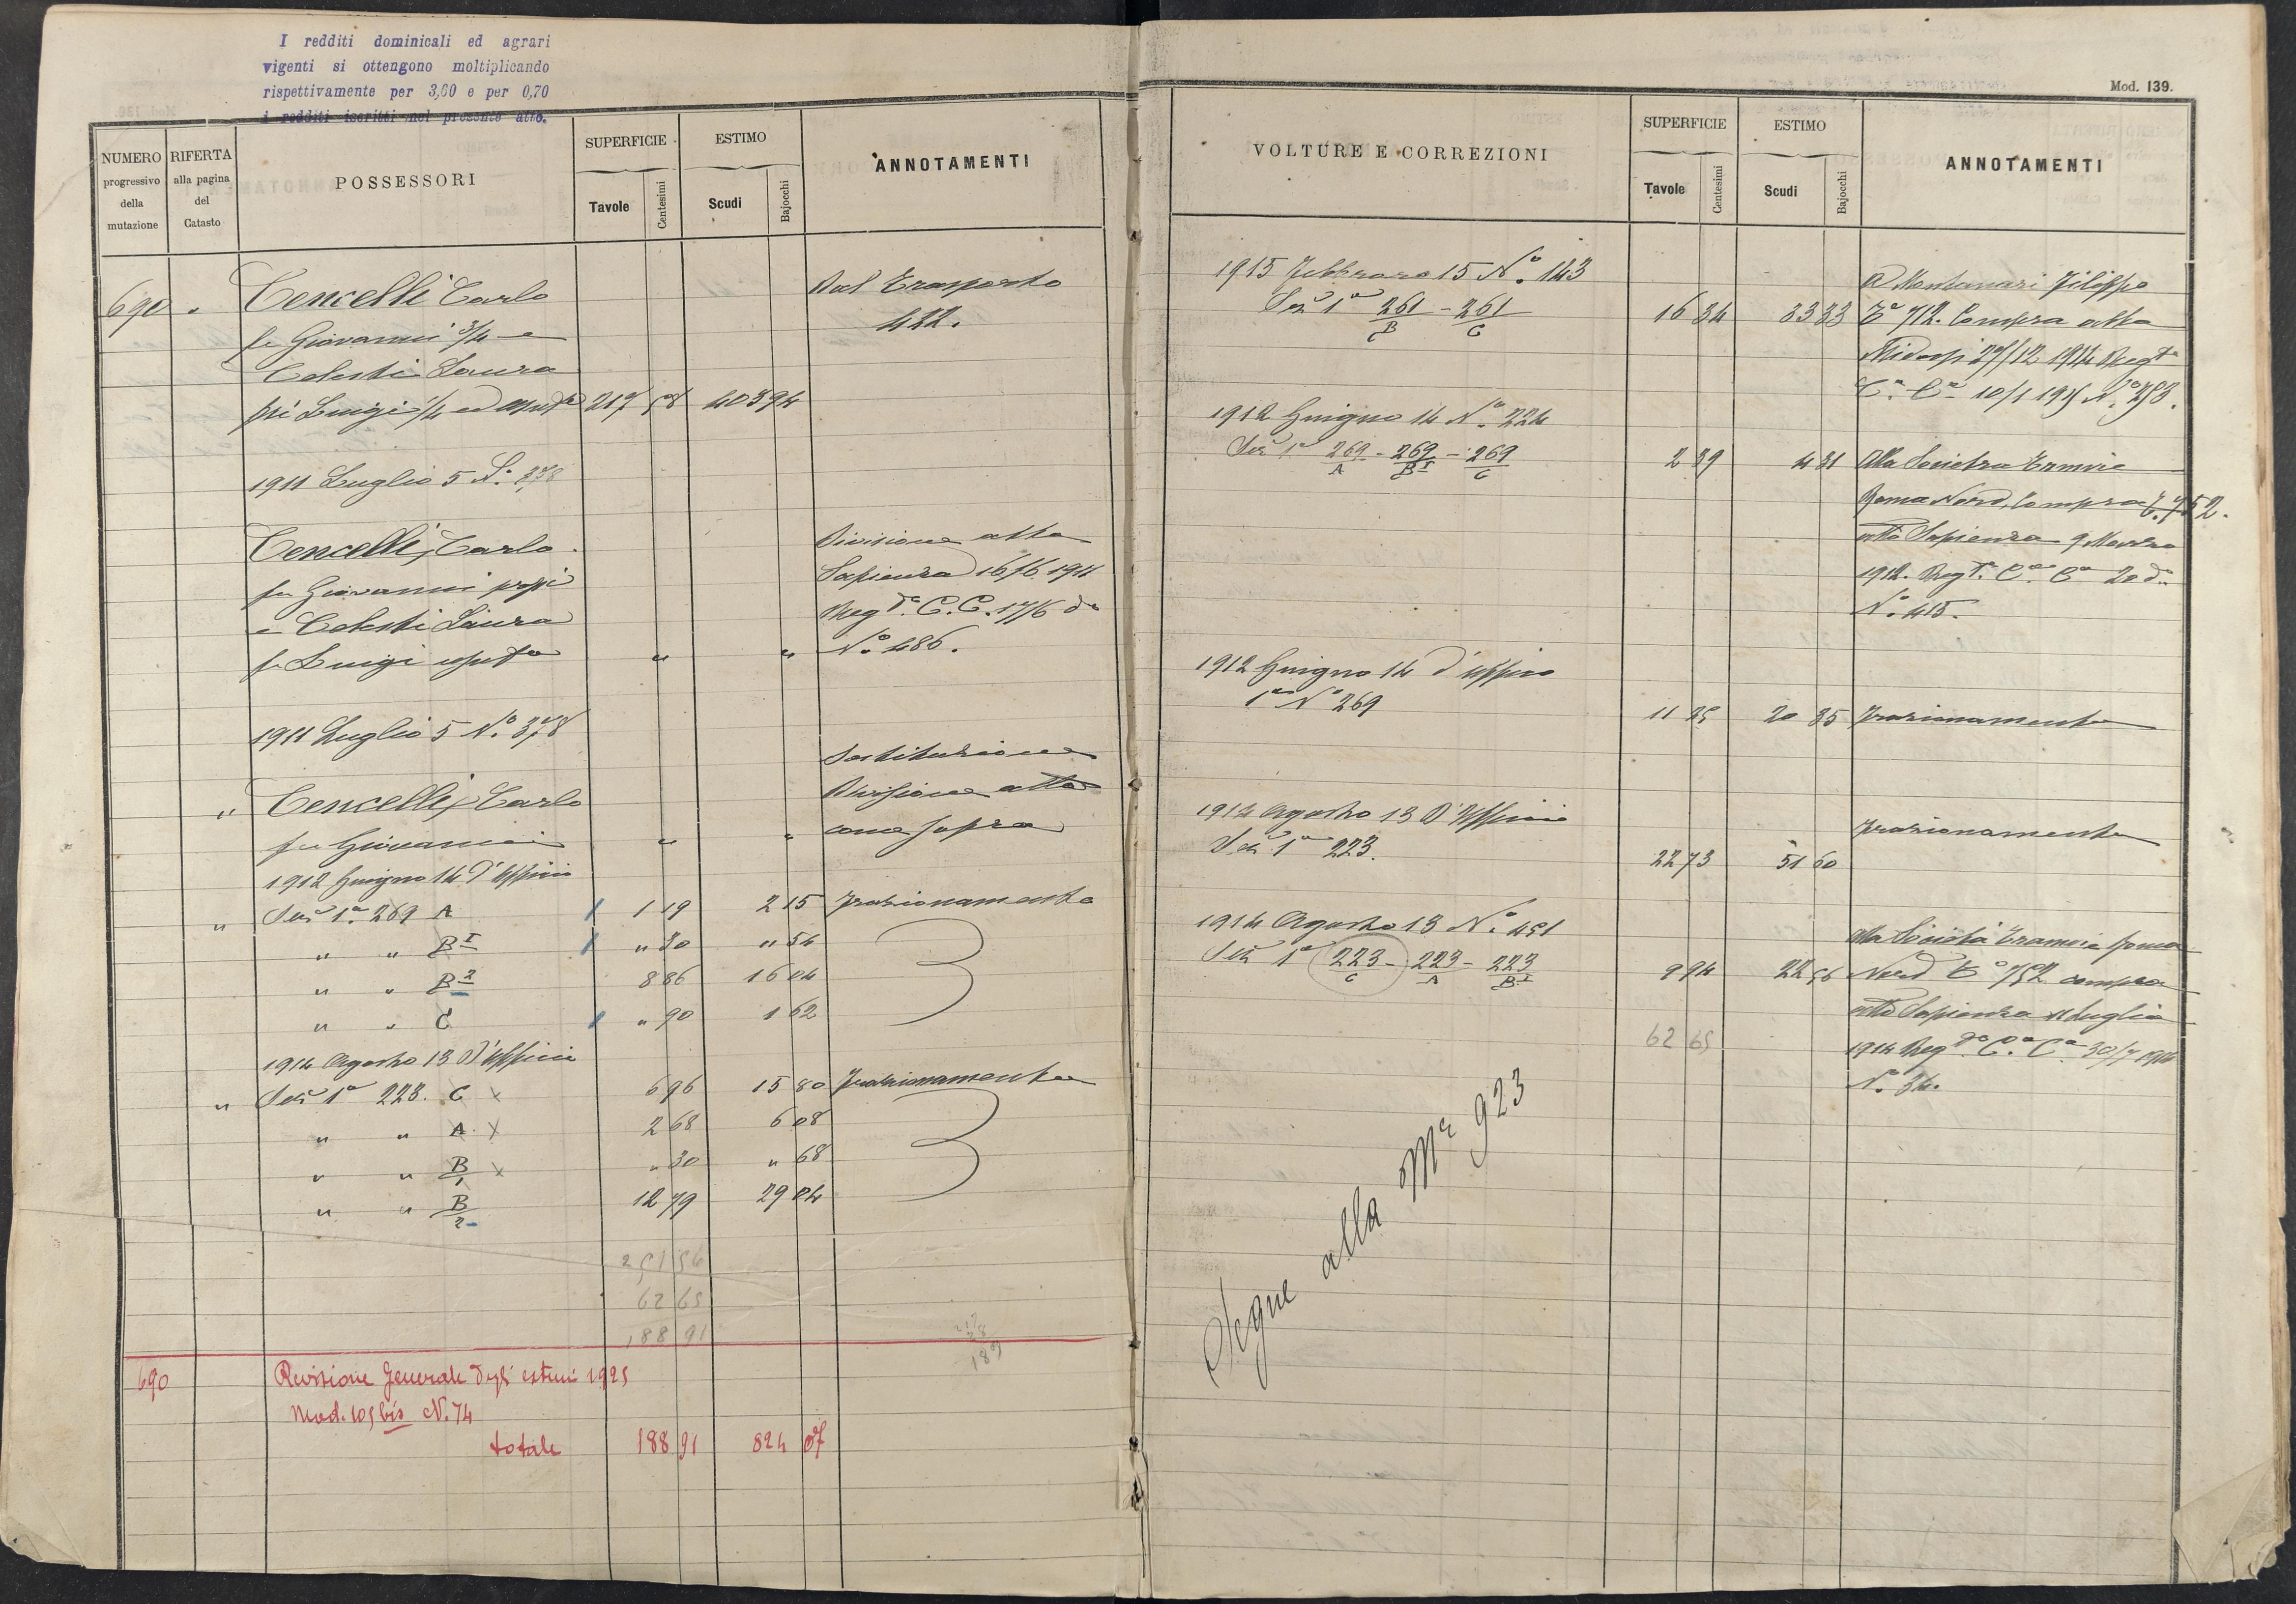 I redditi dominicali ed agrari
vigenti si ottengono moltiplicando
rispettivamente per 3,60 e per 0,70
i redditi iscritti nel presente atto.
NUMERO
progressivo
della
mutazione
RIFERTA
alla pagina
del
Catasto
POSSESSORI
SUPERFICIE
Tavole
Centesimi
ESTIMO
Scudi
Bajocchi
ANNOTAMENTI
690 " Cencelli Carlo Dal Trasporto
fu Giovanni 3/4 e 422.
Celesti Laura
fu Luigi 1/4 ed 217 58 403 94
1911 Luglio 5 N.° 378
Cencelli Carlo Divisione atto
fu Giovanni prop. Sapienza 16/6 1911
e Celesti Laura Reg.to C.C. 17/6 d.o
fu Luigi usuf.a " " N.° 486.
1911 Luglio 5 N.° 378
Sostituzione
" Cencelli Carlo Divisione atto
fu Giovanni " " come sopra
1912 Giugno 14 d'Ufficio
" Sez. 1a 269 A 1 19 2 15 Frazionamento
" " B1 " 30 " 54
" " B2 8 86 16 04
" " C " 90 1 62
1914 Agosto 13 d'Ufficio
" Sez. 1a 223. C 6 96 15 80 Frazionamento
" " A 2 68 6 08
" " B/1 " 30 " 68
" " B/2 12 79 29 04
251 56
62 65
188 91
217
189
690 Revisione Generale degli estimi 1925
Mod. 105 bis N. 74
totale 188 91 824 07
Mod. 139.
VOLTURE E CORREZIONI
SUPERFICIE
Tavole
Centesimi
ESTIMO
Scudi
Bajocchi
ANNOTAMENTI
1915 Febbraro 15 N.° 143 A Montanari Filippo
Sez. 1a 261/B - 261/C 16 34 33 33 T.a 712. Compra atto
27/12 1914 Reg.to
C.a C.a 10/1 1915 N.° 353.
1912 Giugno 14 N.° 224
Sez. 1a 269/A - 269/B1 - 269/C 2 39 4 31 Alla Societa Tramvie
Roma Nord, Compra T. 752.
atto Sapienza 9 Marzo
1912. Reg.to C.a C.a 20 d.o
N.° 415.
1912 Giugno 14 d'Ufficio
1a N° 269 11 25 20 35 Frazionamento
1914 Agosto 13 D'Ufficio Frazionamento
Sez. 1a 223. 22 73 51 60
1914 Agosto 13 N.° 451 Alla Società Tramvie Roma
Sez. 1a 223/C - 223/A - 223/B1 9 94 22 56 Nord T.a 752 compra
atto Sapienza Luglio
62 65 1914 Reg.to C.a C.a 30/7 1914
N.° 34.
Segue alla Mª 923